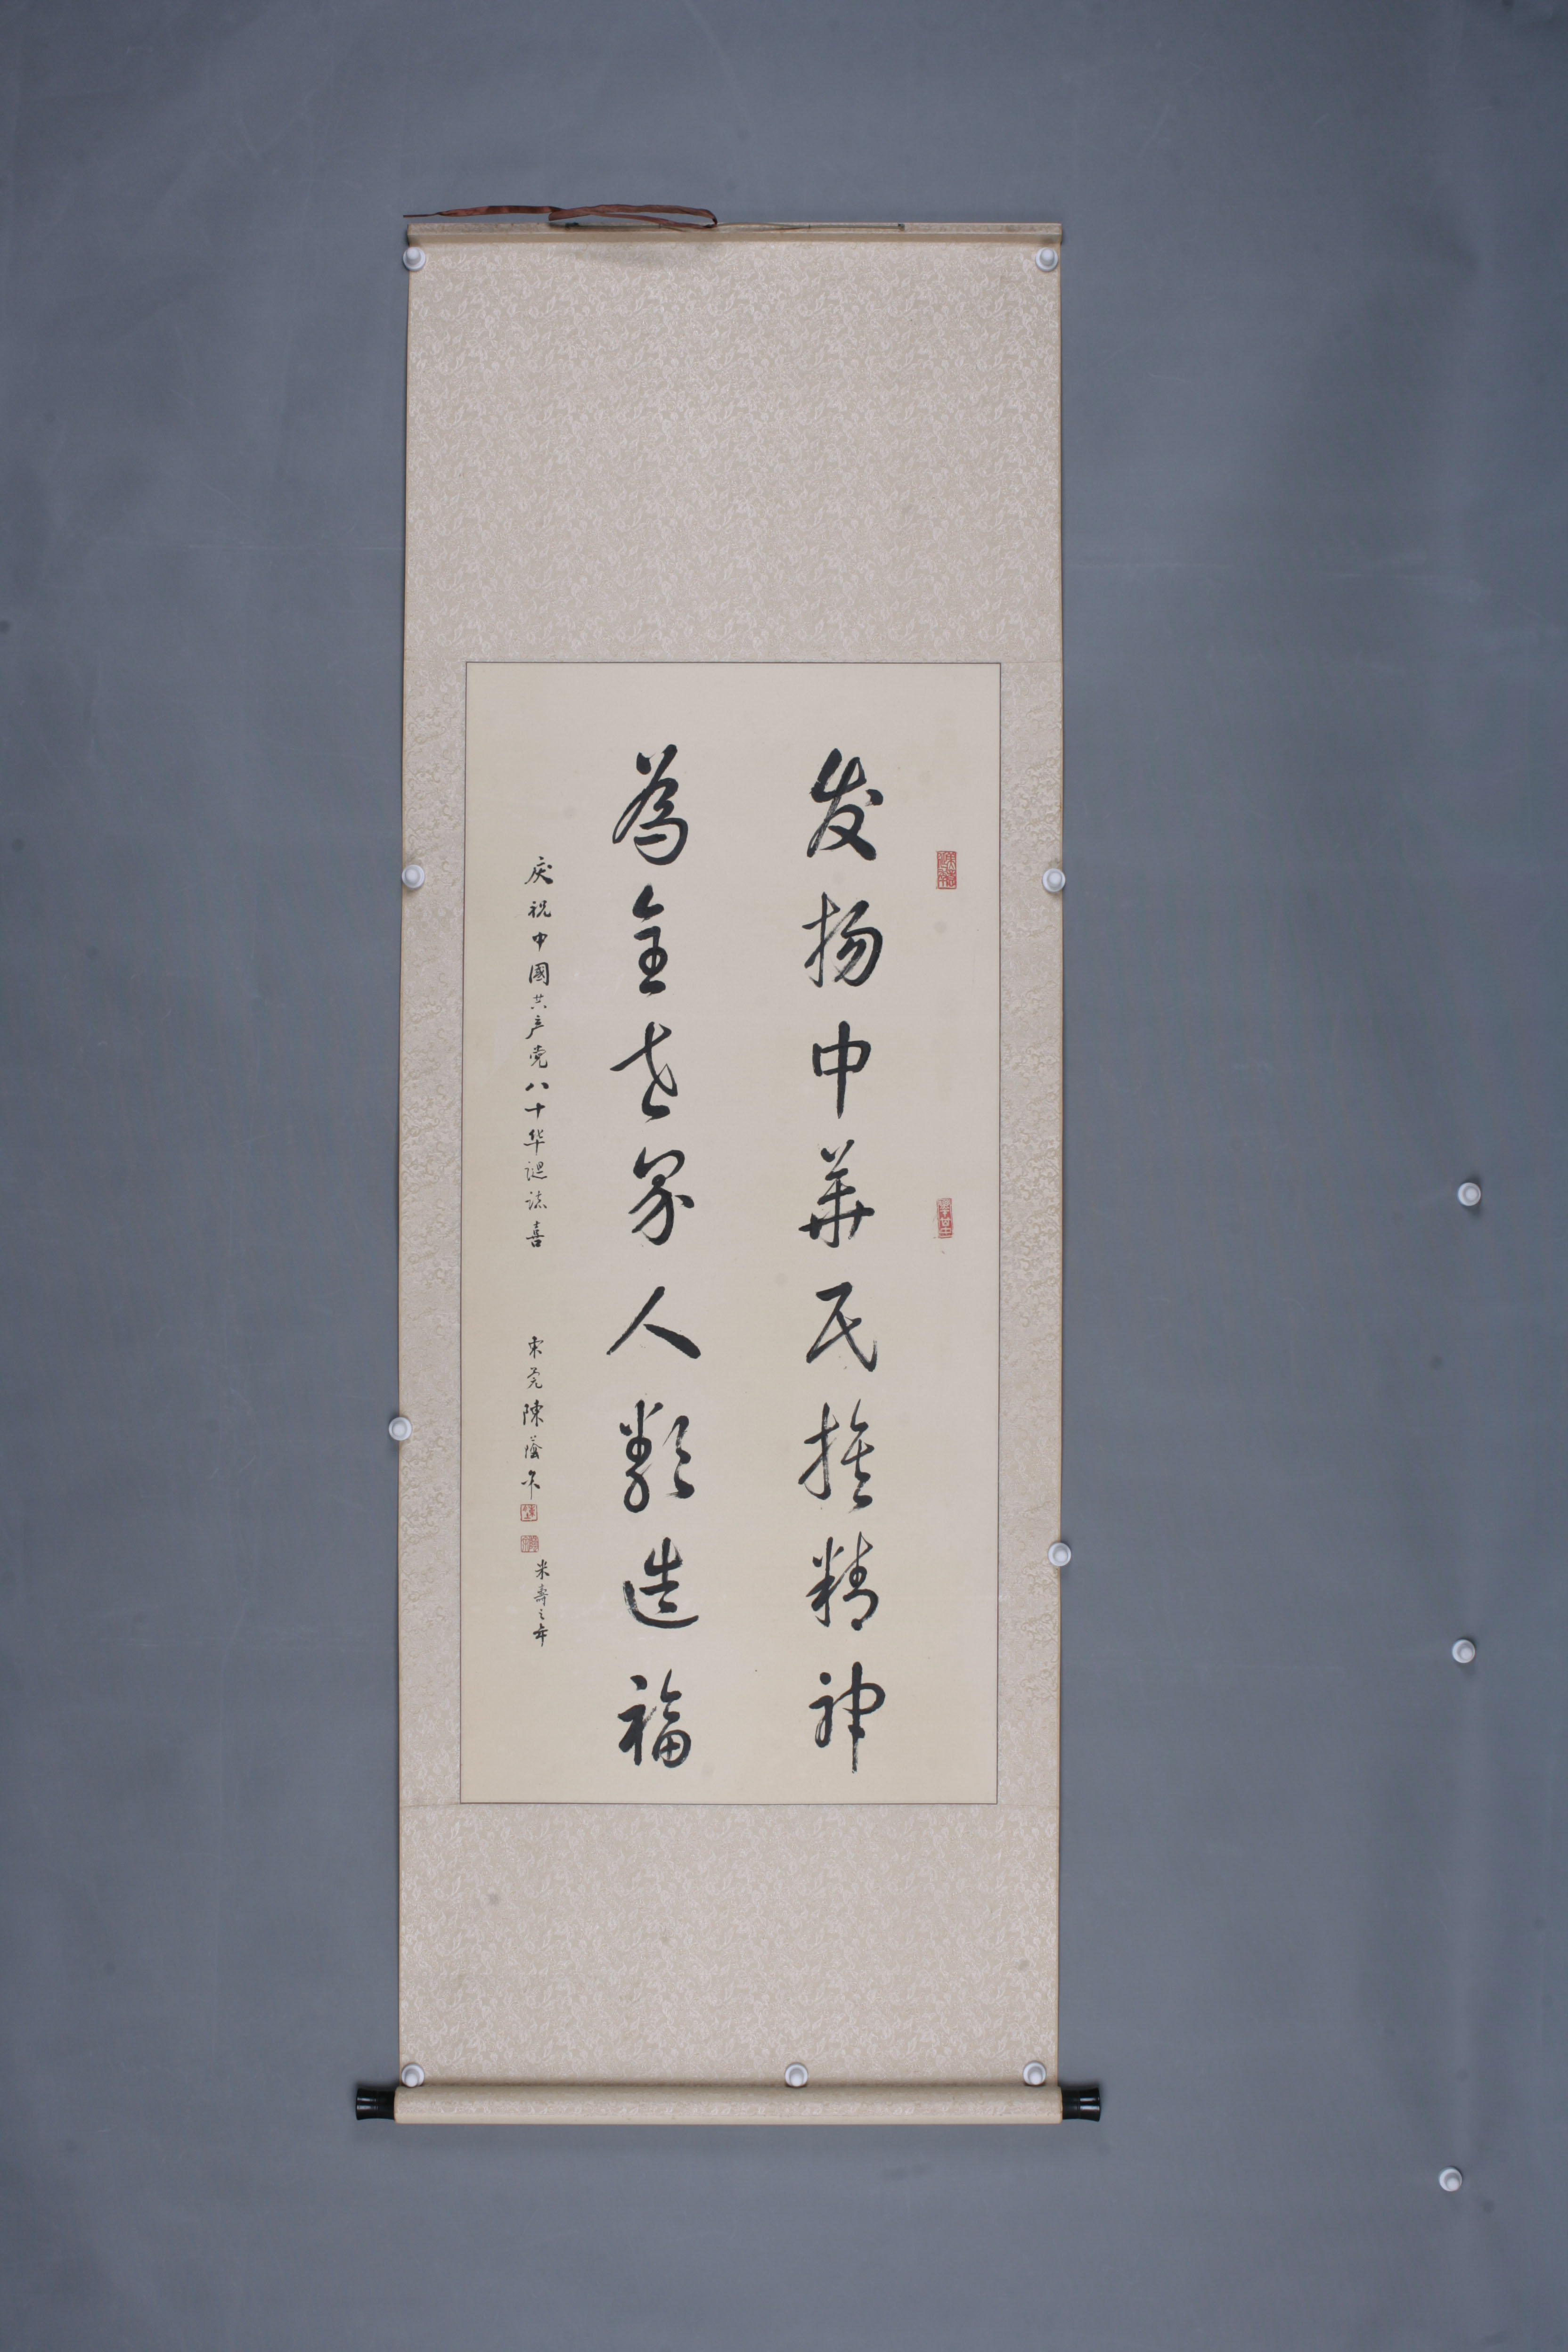 发扬中华民族精神
為全世界人類造福
庆祝中國共产党八十华诞志喜
東莞陳蔭
米壽之年